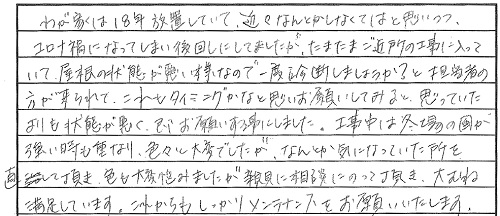 わが家は18年放置していて、近々なんとかしなくてはと思いつつ、
コロナ禍になってしまい後回しにしてましたが、たまたまご近所の工事に入って
いて、屋根の状態が悪い様なので一度診断しましょうか?と担当者の
方が来られて、これもタイミングかなと思いお願いしてみると、思っていた
よりも状態が悪く、ぜひお願いする事にしました。工事中は冬場の風が
強い時も重なり、色々と大変でしたが、なんとか気になっていた所を
直して頂き、色も大変悩みましたが親身に相談にのって頂き、大むね
満足しています。これからもしっかりメンテナンスをお願いいたします。